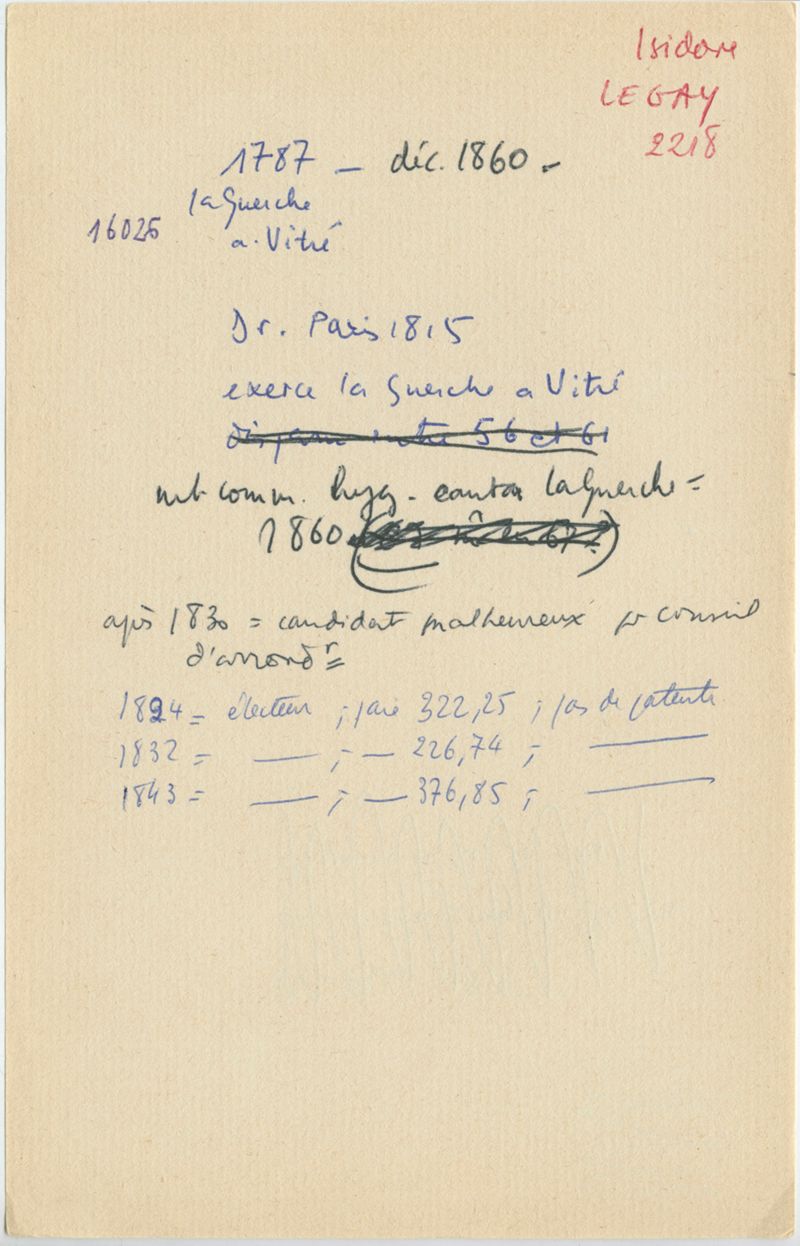 Isidore
LEGAY
2218
1787 – déc. 1860 –
la Guerche
16025
a. Vitré
Dr. Paris 1815
exerce la Guerche a Vitré
entre 56 et 61
mb comm. hyg. canton la Guerche =
1860
après 1830 = candidat malheureux pr conseil
d'arrondr =
1824 = électeur ; paie 322,25 ; pas de patente
1832 = — ; — 226,74 ; —
1843 = — ; — 376,85 ; —